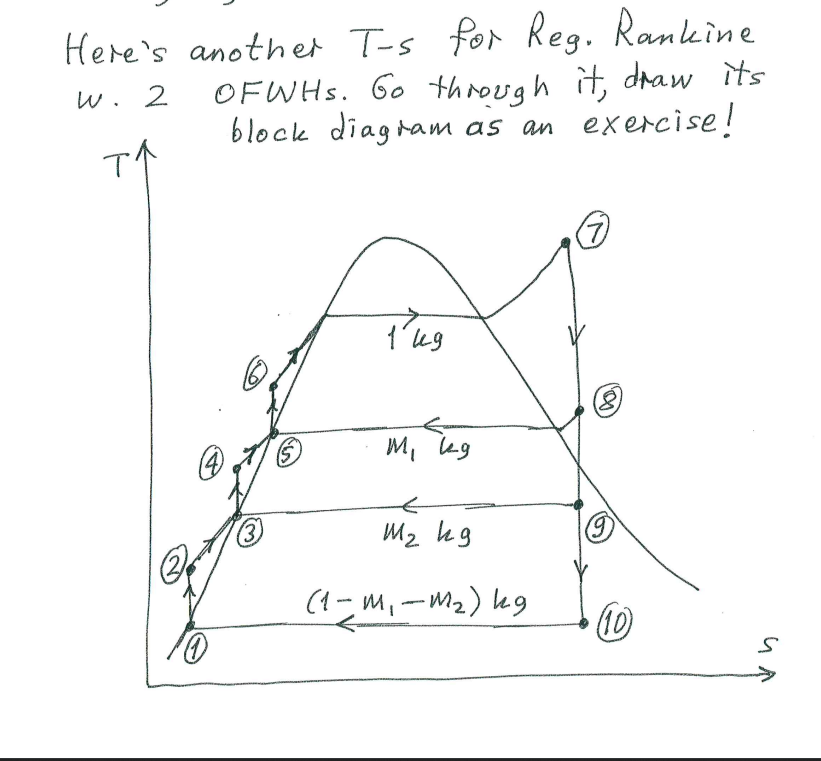 Here's another T-s for Reg. Rankine
w. 2 OFWHs. Go through it, draw its
block diagram as an exercise!
T
7
1 kg
6
8
4
5
m₁ kg
3
9
m₂ kg
2
(1-m₁-m₂) kg
10
1
s